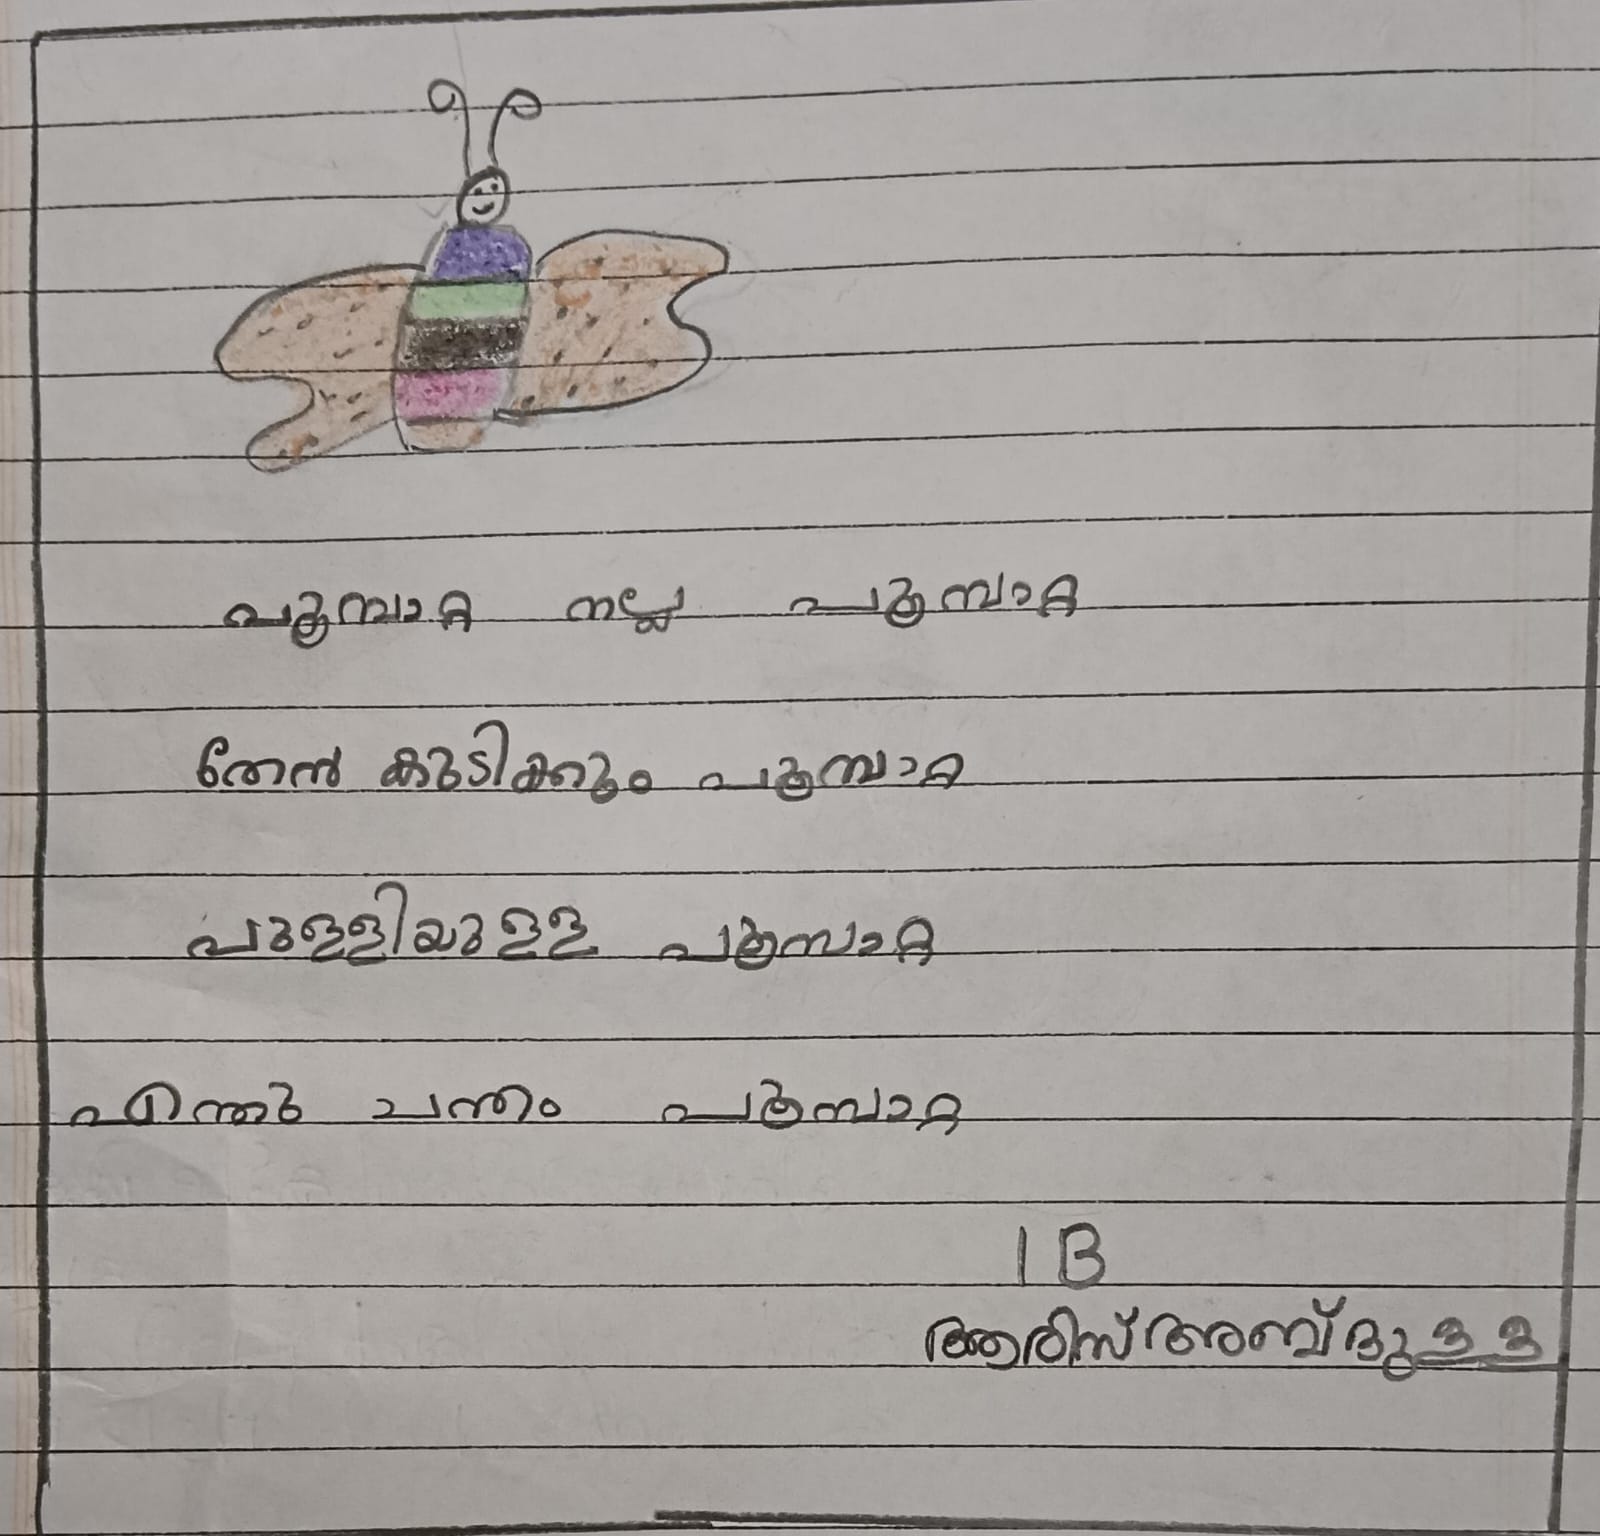 പൂമ്പാറ്റ നല്ല പൂമ്പാറ്റ
തേൻ കുടിക്കും പൂമ്പാറ്റ
പുള്ളിയുള്ള പൂമ്പാറ്റ
എന്തു ചന്തം പൂമ്പാറ്റ
1 B
ആരിസ് അബ്ദുള്ള